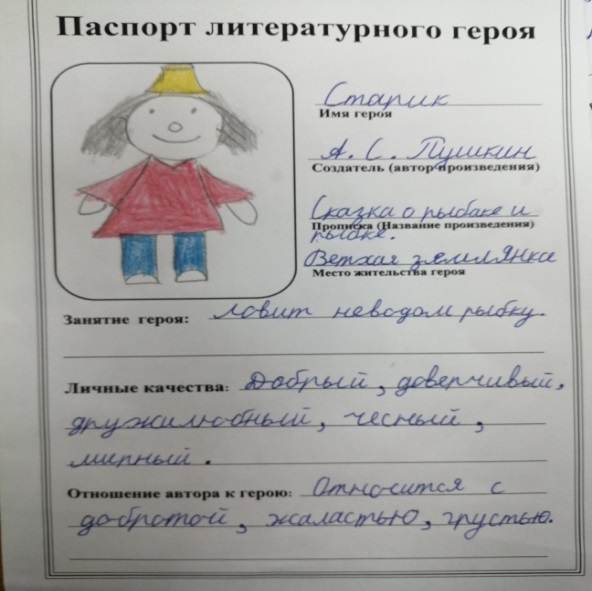 Паспорт литературного героя
Старик
Имя героя
А. С. Пушкин
Создатель (автор произведения)
Сказка о рыбаке и
Прописка (Название произведения)
рыбке.
Ветхая землянка
Место жительства героя
Занятие героя: Ловит неводом рыбку.
Личные качества: Добрый, доверчивый,
дружилюбный, чесный,
мирный.
Отношение автора к герою: Относится с
добротой, жаластью, грустью.